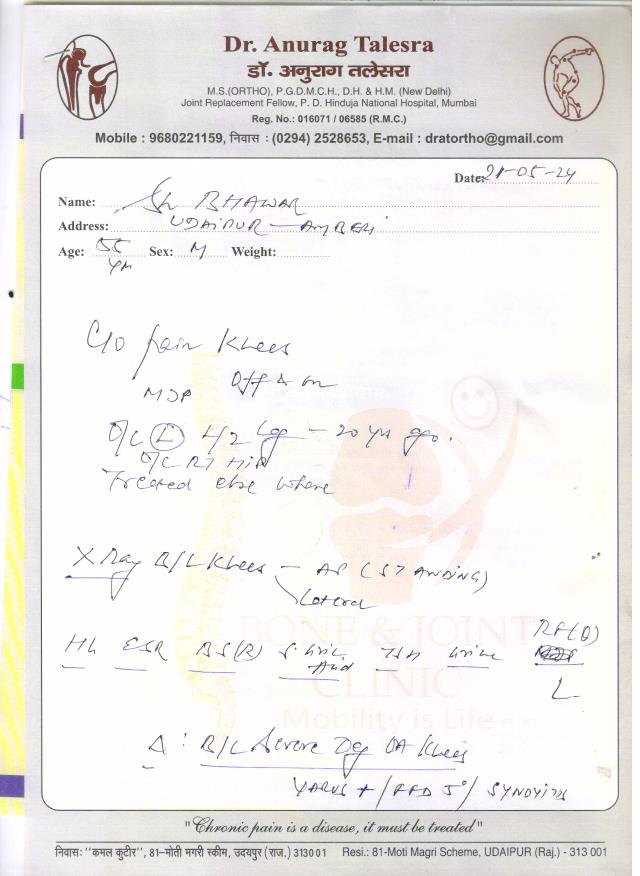 Dr. Anurag Talesra
डॉ. अनुराग तलेसरा
M.S.(ORTHO), P.G.D.M.C.H., D.H. & H.M. (New Delhi)
Joint Replacement Fellow, P. D. Hinduja National Hospital, Mumbai
Reg. No.: 016071 / 06585 (R.M.C.)
Mobile : 9680221159, निवास : (0294) 2528653, E-mail : dratortho@gmail.com
Date: 21-05-24
Name: Sh BHAWAR
Address: UDAIPUR - AMBERI
Age: 55 Sex: M Weight:
Yrs
C/O pain Knees
Off & on
O/C (L) # 2 Leg - 20 yrs ago.
O/C RT Hip
Treated else where
X Ray B/L Knees - AP (STANDING)
Lateral
Hb ESR BS(R) S. Uric Acid TSH Urine RF(Q)
BONE & JOINT
CLINIC
Mobility is Life
Δ : B/L Severe Deg OA Knees
VARUS + / FFD 5° / SYNOVITIS
"Chronic pain is a disease, it must be treated"
निवास: "कमल कुटीर", 81-मोती मगरी स्कीम, उदयपुर (राज.) 313001 Resi.: 81-Moti Magri Scheme, UDAIPUR (Raj.) - 313 001